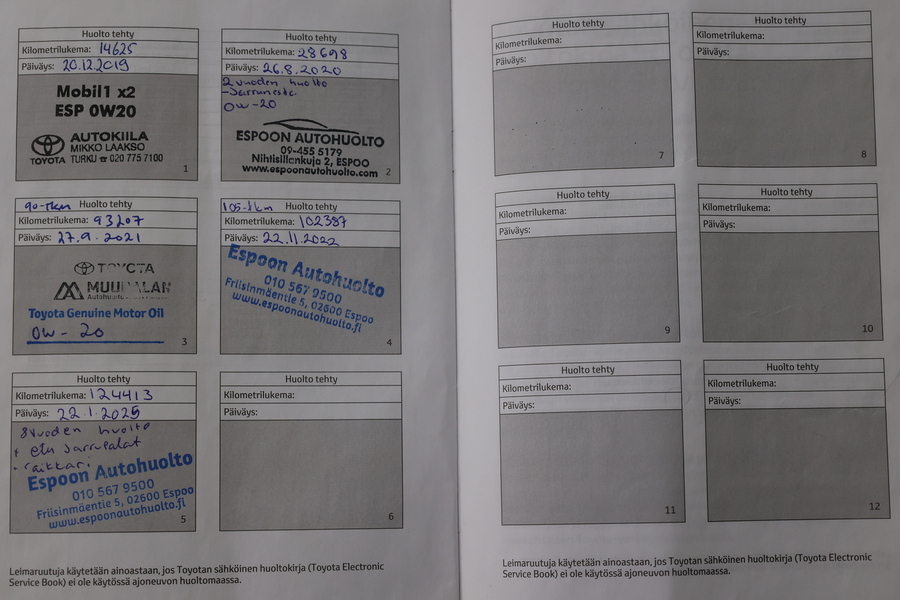 Huolto tehty
Kilometrilukema: 14625
Päiväys: 20.12.2019
Mobil1 x2
ESP 0W20
AUTOKIILA
MIKKO LAAKSO
TOYOTA TURKU ☎ 020 775 7100
1
Huolto tehty
Kilometrilukema: 28698
Päiväys: 26.8.2020
2 vuoden huolto
0W-20
ESPOON AUTOHUOLTO
09-455 5179
Nihtisillankuja 2, ESPOO
www.espoonautohuolto.com
2
90-tkm Huolto tehty
Kilometrilukema: 93207
Päiväys: 27.9.2021
TOYOTA
Toyota Genuine Motor Oil
0W-20
3
105-tkm Huolto tehty
Kilometrilukema: 102387
Päiväys: 22.11.2022
Espoon Autohuolto
010 567 9500
Friisinmäentie 5, 02600 Espoo
www.espoonautohuolto.fi
4
Huolto tehty
Kilometrilukema: 124413
Päiväys: 22.1.2025
8 vuoden huolto
+ etu jarrupalat
Espoon Autohuolto
010 567 9500
Friisinmäentie 5, 02600 Espoo
www.espoonautohuolto.fi
5
Huolto tehty
Kilometrilukema:
Päiväys:
6
Leimaruutuja käytetään ainoastaan, jos Toyotan sähköinen huoltokirja (Toyota Electronic
Service Book) ei ole käytössä ajoneuvon huoltomaassa.
Huolto tehty
Kilometrilukema:
Päiväys:
7
Huolto tehty
Kilometrilukema:
Päiväys:
8
Huolto tehty
Kilometrilukema:
Päiväys:
9
Huolto tehty
Kilometrilukema:
Päiväys:
10
Huolto tehty
Kilometrilukema:
Päiväys:
11
Huolto tehty
Kilometrilukema:
Päiväys:
12
Leimaruutuja käytetään ainoastaan, jos Toyotan sähköinen huoltokirja (Toyota Electronic
Service Book) ei ole käytössä ajoneuvon huoltomaassa.